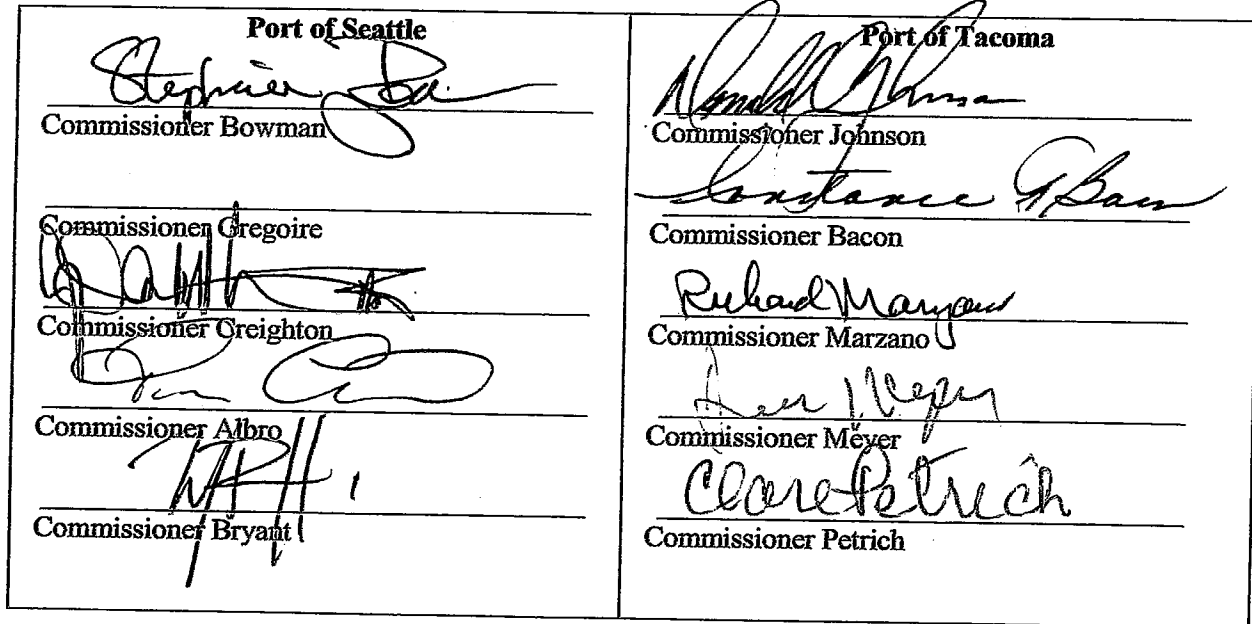 Port of Seattle
Stephanie
Commissioner Bowman
Commissioner Gregoire
Commissioner Creighton
Commissioner Albro
Commissioner Bryant
Port of Tacoma
Donald Johnson
Commissioner Johnson
Constance Bacon
Commissioner Bacon
Richard Marzano
Commissioner Marzano
Meyer
Commissioner Meyer
Clare Petrich
Commissioner Petrich